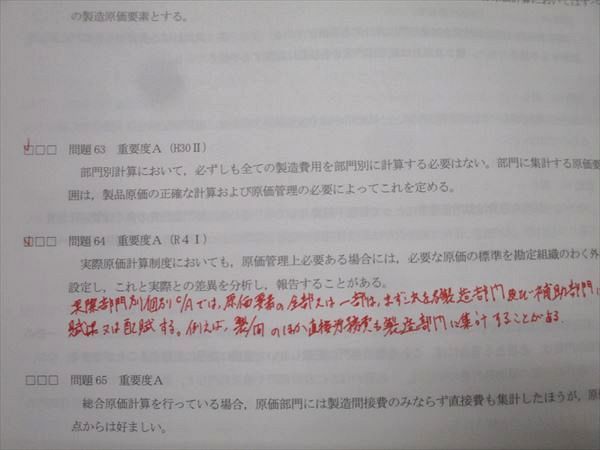 の製造原価要素とする。
□□□ 問題63 重要度A (H30Ⅱ)
部門別計算において，必ずしも全ての製造費用を部門別に計算する必要はない。部門に集計する原価要
囲は，製品原価の正確な計算および原価管理の必要によってこれを定める。
□□□ 問題64 重要度A (R4Ⅰ)
実際原価計算制度においても，原価管理上必要ある場合には，必要な原価の標準を勘定組織のわく外
設定し，これと実際との差異を分析し，報告することがある。
実際部門別個別C/Aでは，原価要素の全部又は一部は，まず 製造部門及び補助部門に
賦課又は配賦する。例えば，製/間のほか直接労務費も製造部門に集計することがある。
□□□ 問題65 重要度A
総合原価計算を行っている場合，原価部門には製造間接費のみならず直接費も集計したほうが，原
点からは好ましい。